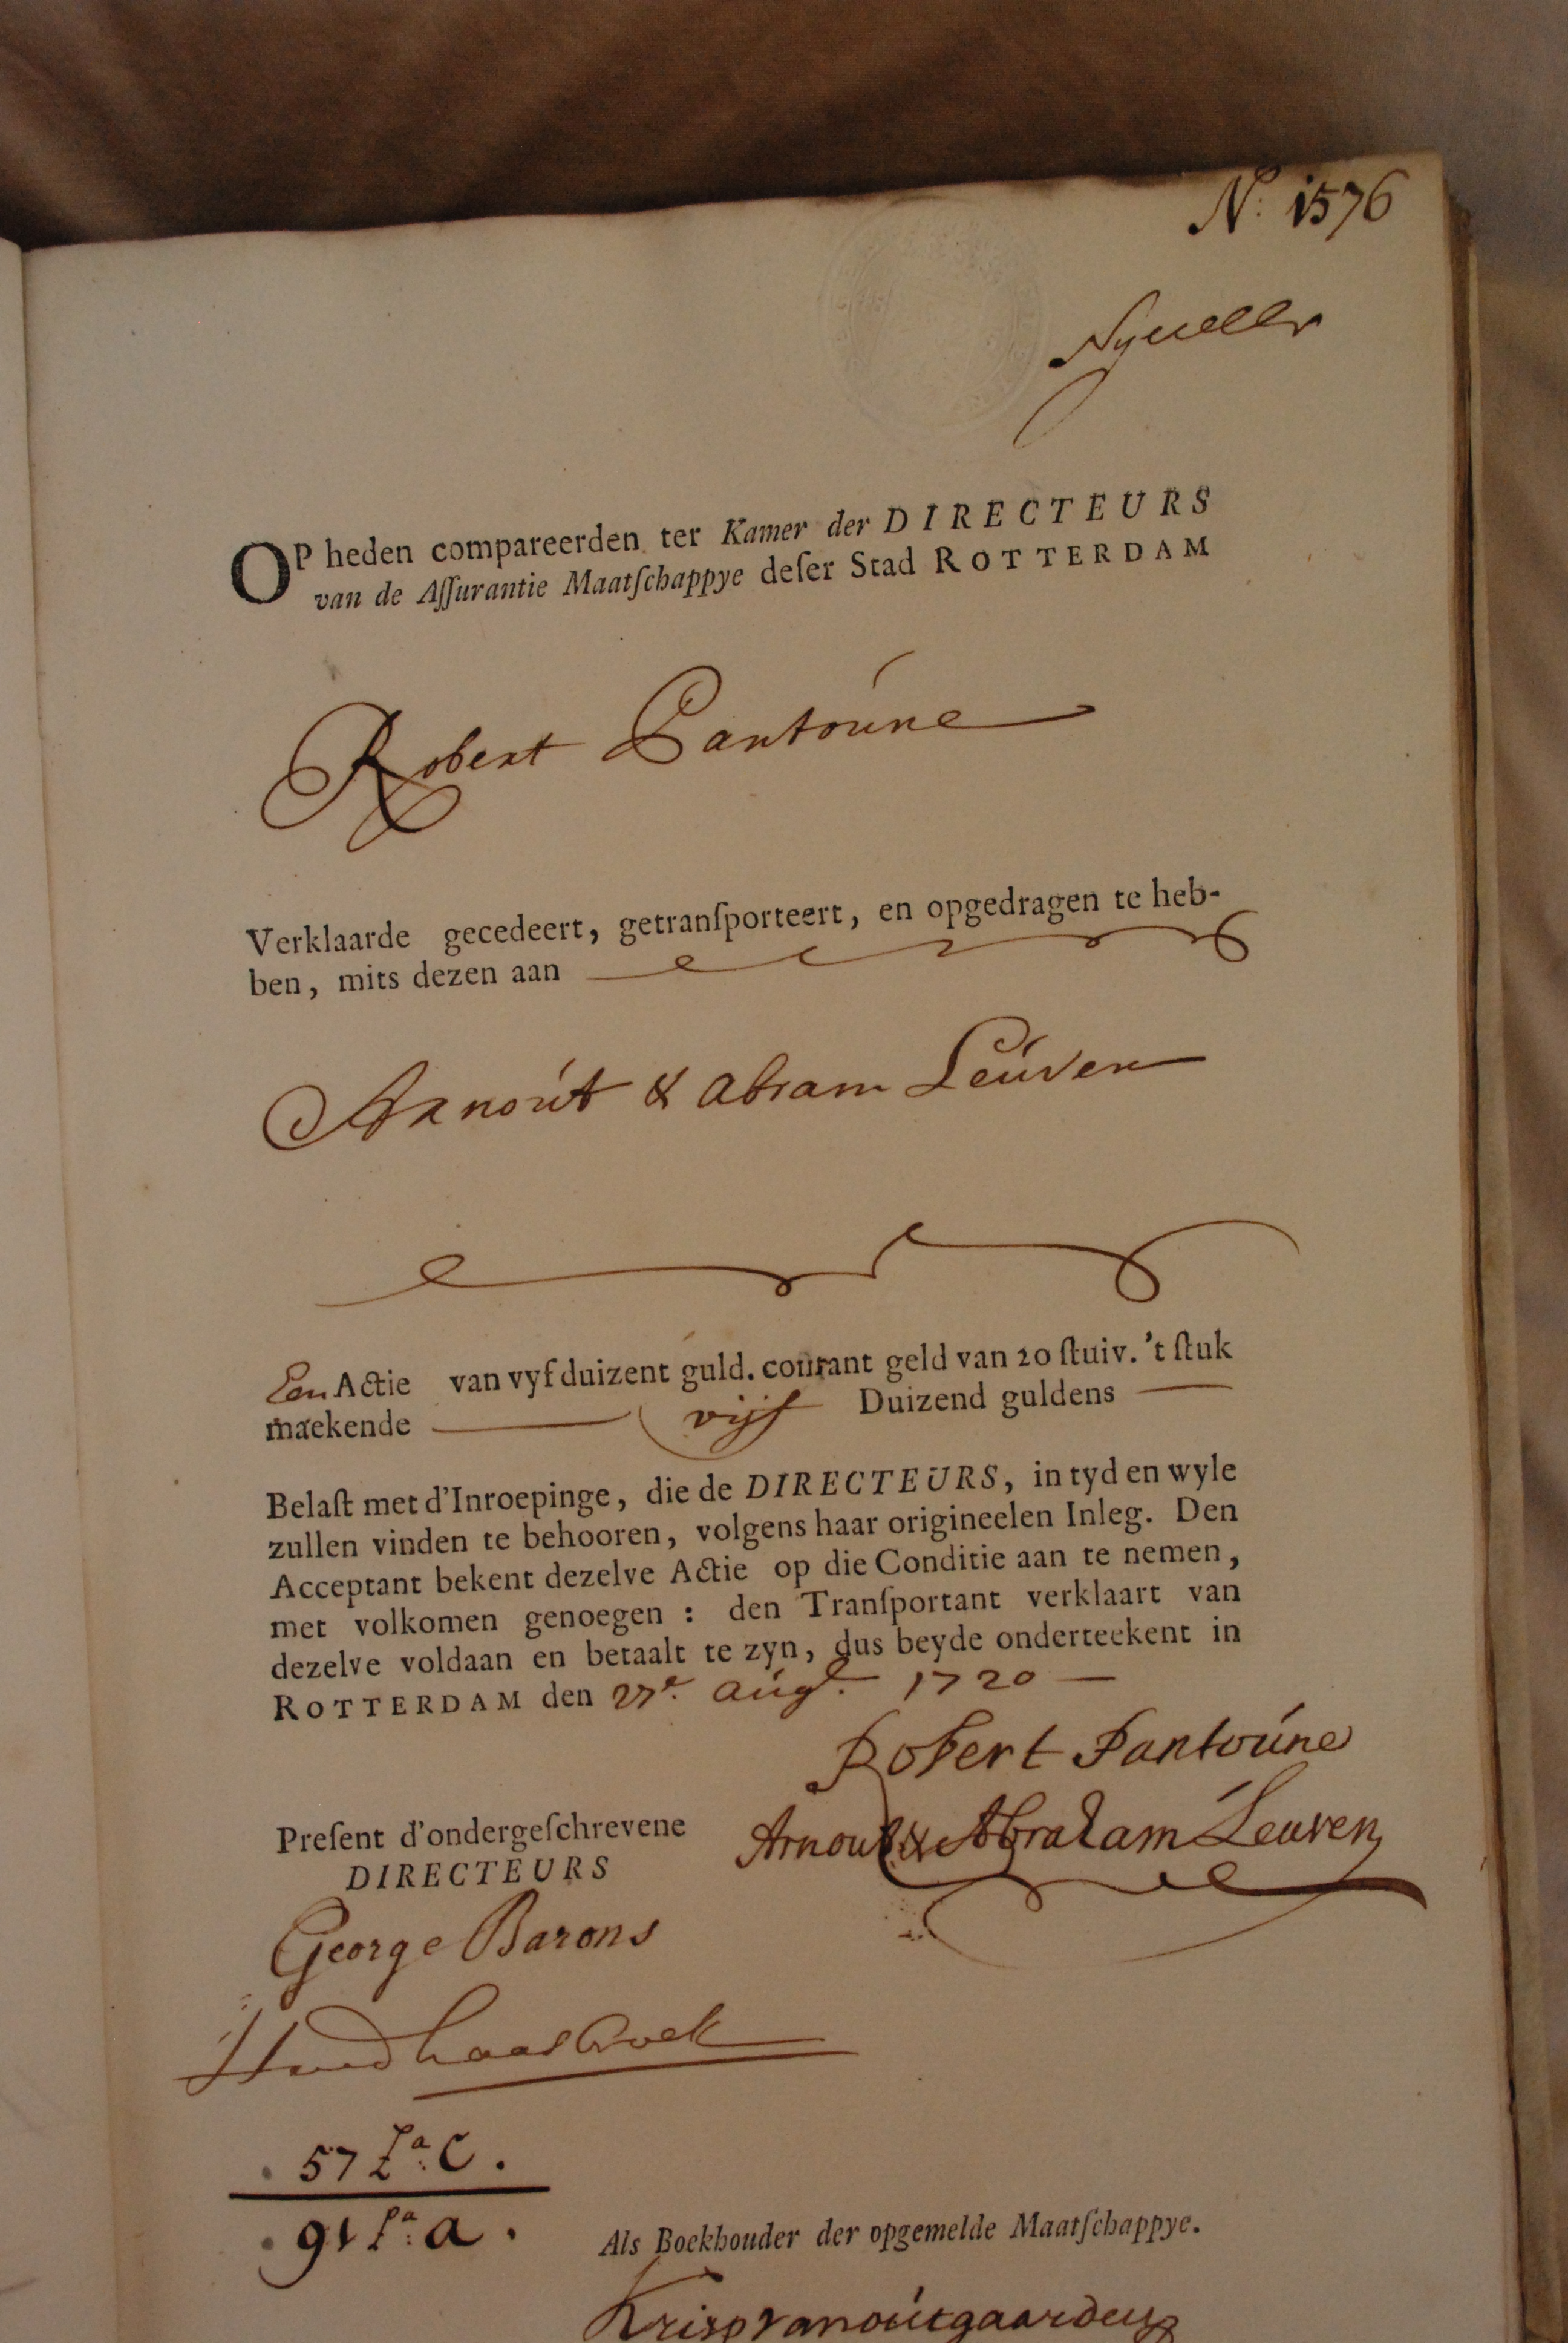 N:º 1576
OP heden compareerden ter Kamer der DIRECTEURS
van de Aſſurantie Maatſchappye deſer Stad ROTTERDAM
Robert Pantoúne
Verklaarde gecedeert, getranſporteert, en opgedragen te heb-
ben, mits dezen aan
Arnoút & Abram Leúven
Een Actie van vyf duizent guld. courant geld van 20 ſtuiv. 't ſtuk
maekende vijf Duizend guldens
Belaſt met d'Inroepinge, die de DIRECTEURS, in tyd en wyle
zullen vinden te behooren, volgens haar origineelen Inleg. Den
Acceptant bekent dezelve Actie op die Conditie aan te nemen,
met volkomen genoegen : den Tranſportant verklaart van
dezelve voldaan en betaalt te zyn, dus beyde onderteekent in
ROTTERDAM den 27e. aúge. 1720
Robert Pantoúne
Arnout & Abraham Leuven
Preſent d'ondergeſchrevene
DIRECTEURS
George Barons
57 La: C.
91 La: a.
Als Boekhouder der opgemelde Maatſchappye.